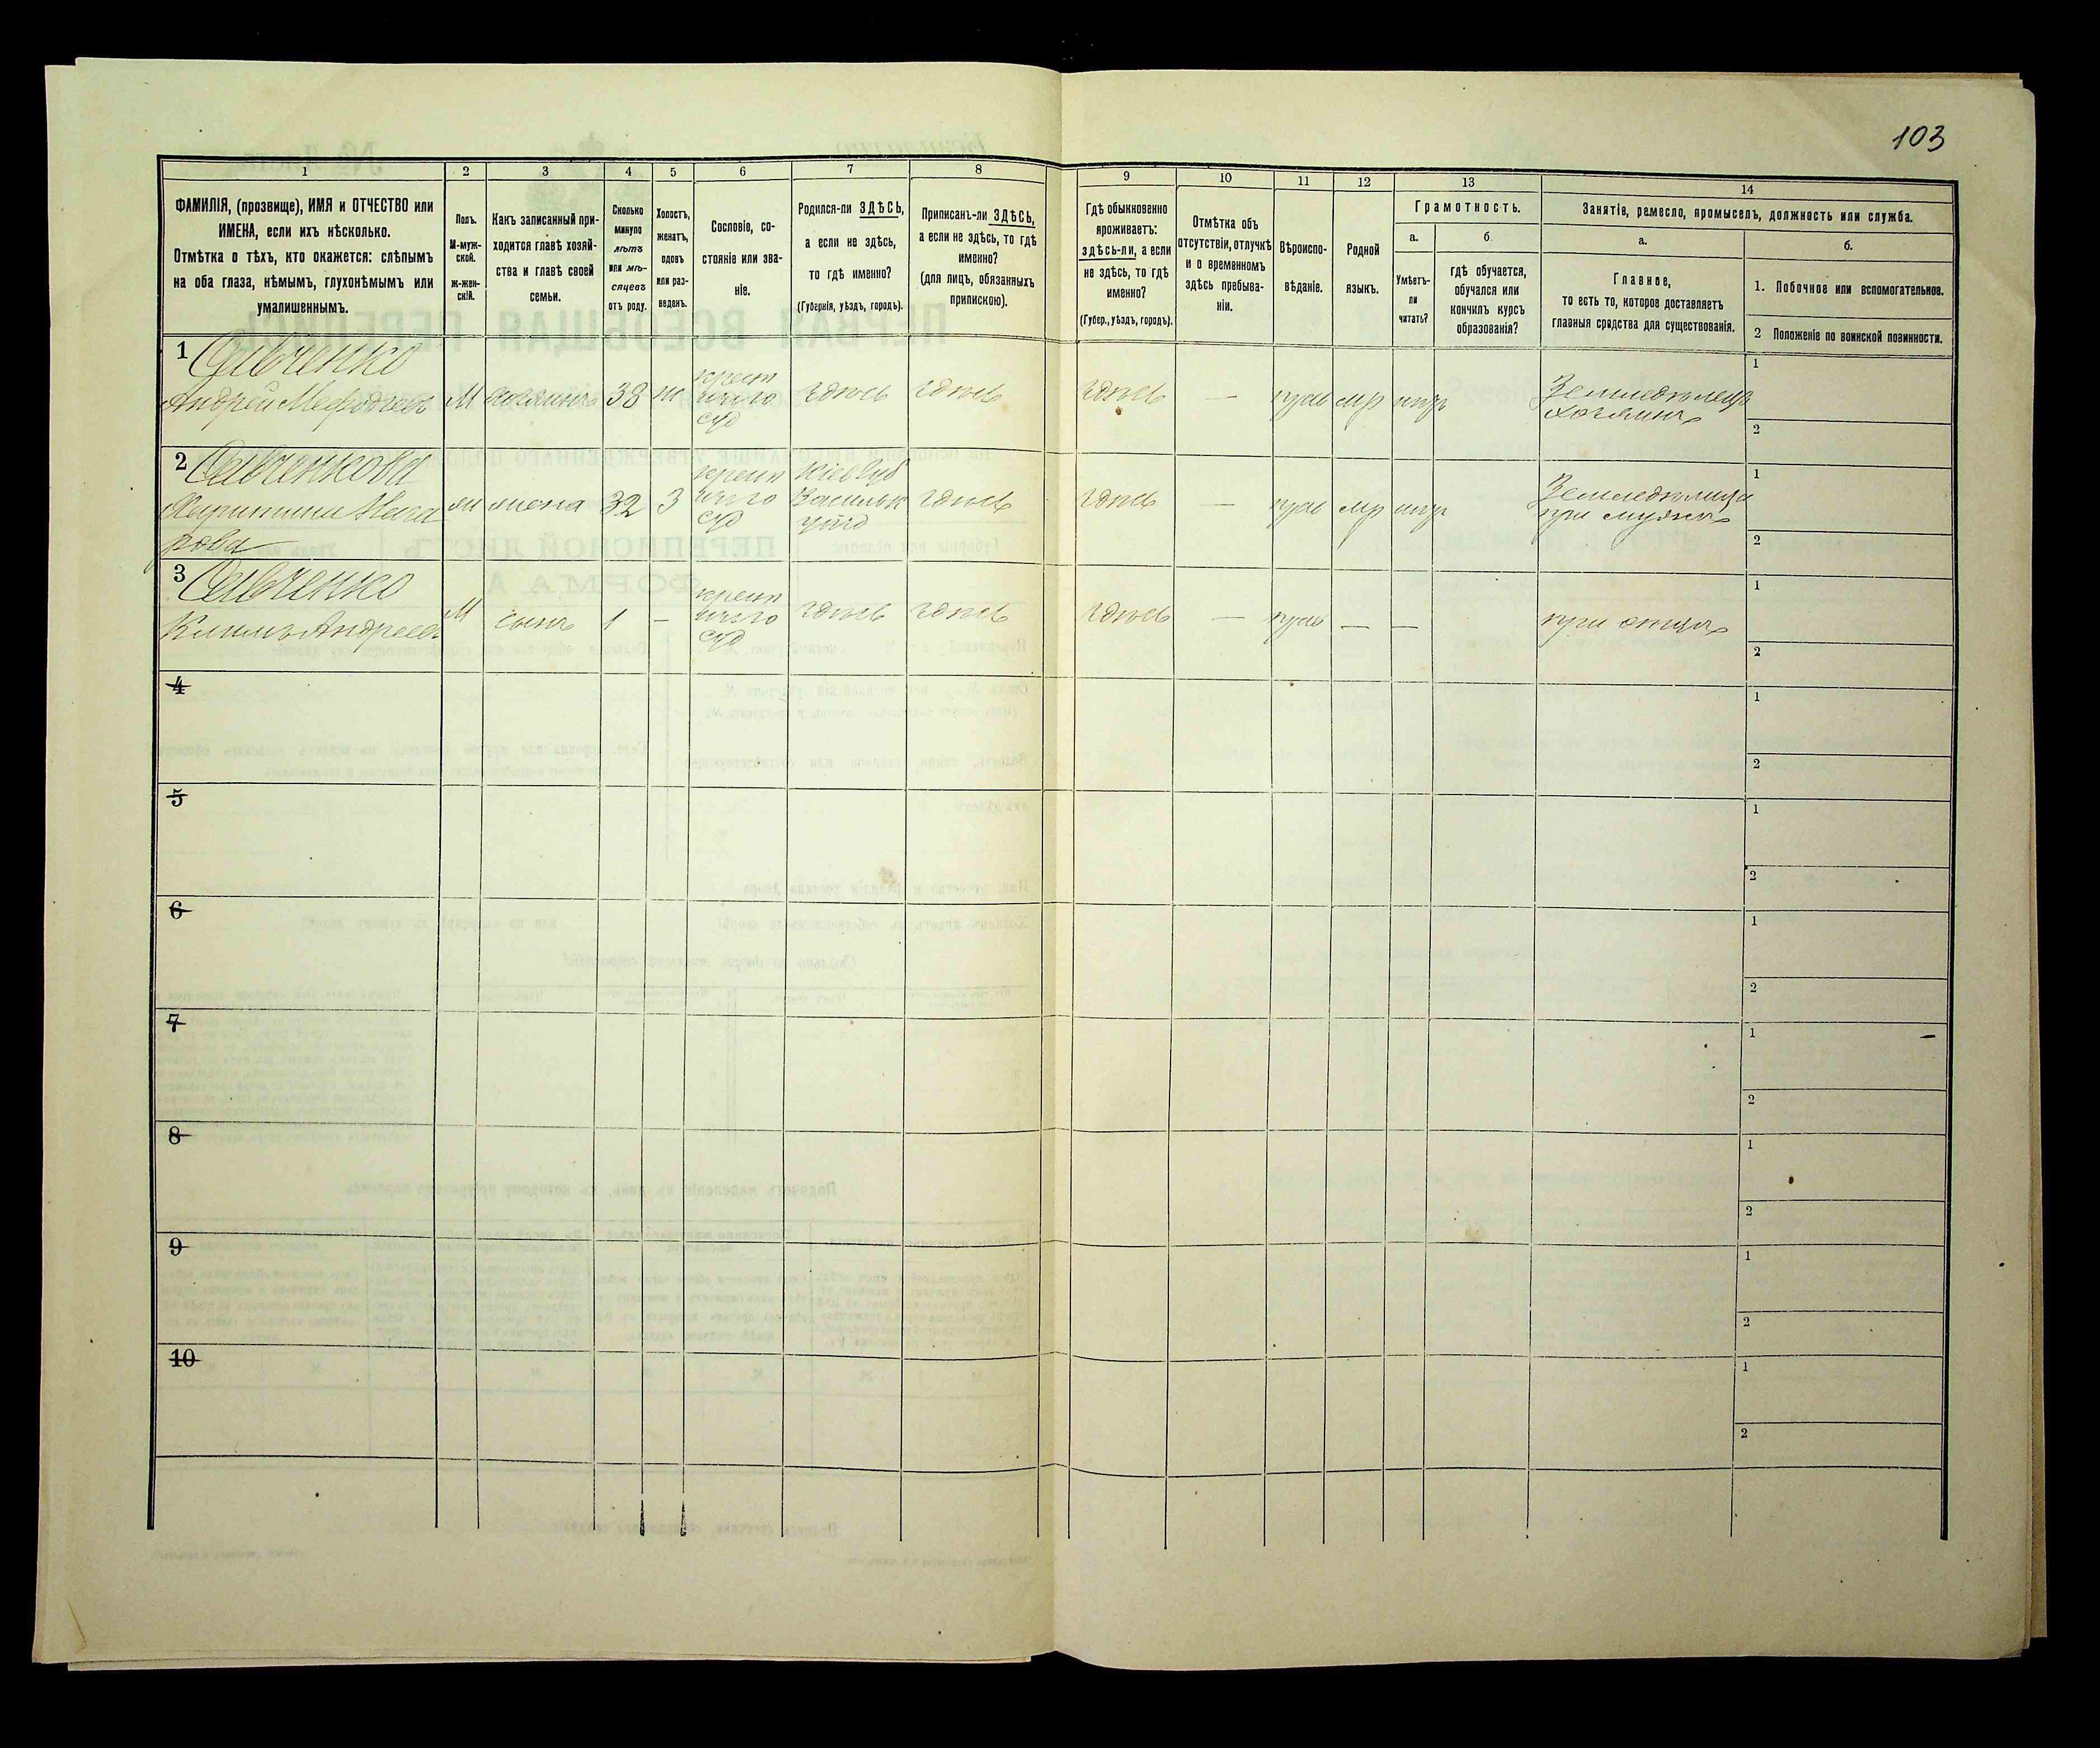 103
1
2
3
4
5
6
7
8
9
10
11
12
13
14
ФАМИЛІЯ, (прозвище), ИМЯ и ОТЧЕСТВО или
ИМЕНА, если ихъ нѣсколько.
Отмѣтка о тѣхъ, кто окажется: слѣпымъ
на оба глаза, нѣмымъ, глухонѣмымъ или
умалишеннымъ.
Полъ.
М-муж-
ской.
ж-жен-
скій.
Какъ записанный при-
ходится главѣ хозяй-
ства и главѣ своей
семьи.
Сколько
минуло
лѣтъ
или мѣ-
сяцевъ
отъ роду.
Холостъ,
женатъ,
вдовъ
или раз-
веденъ.
Сословіе, со-
стояніе или зва-
ніе.
Родился-ли ЗДѢСЬ,
а если не здѣсь,
то гдѣ именно?
(Губернія, уѣздъ, городъ).
Приписанъ-ли ЗДѢСЬ,
а если не здѣсь, то гдѣ
именно?
(для лицъ, обязанныхъ
припискою).
Гдѣ обыкновенно
проживаетъ:
здѣсь-ли, а если
не здѣсь, то гдѣ
именно?
(Губер., уѣздъ, городъ).
Отмѣтка объ
отсутствіи, отлучкѣ
и о временномъ
здѣсь пребыва-
ніи.
Вѣроиспо-
вѣданіе.
Родной
языкъ.
Грамотность.
а.
Умѣетъ-
ли
читать?
б
гдѣ обучается,
обучался или
кончилъ курсъ
образованія?
Занятіе, ремесло, промыселъ, должность или служба.
а.
Главное,
то есть то, которое доставляетъ
главныя средства для существованія.
б.
1. Побочное или вспомогательное.
2 Положеніе по воинской повинности.
1 Савченко
Андрей Мефодіевъ
М
хозяинъ
38
крест
здѣсь
здѣсь
здѣсь
—
прав
мр
Земледѣлецъ
хозяинъ
1
2
2 Савченкова
Харитина
жена
32
З
крест
Кіев губ
Васильк
уѣзд
здѣсь
здѣсь
—
прав
мр
при мужѣ
1
2
3 Савченко
Климъ Андреев
М
сынъ
1
—
крест
здѣсь
здѣсь
здѣсь
—
прав
—
—
при отцѣ
1
2
4
1
2
5
1
2
6
1
2
7
1
2
8
1
2
9
1
2
10
1
2